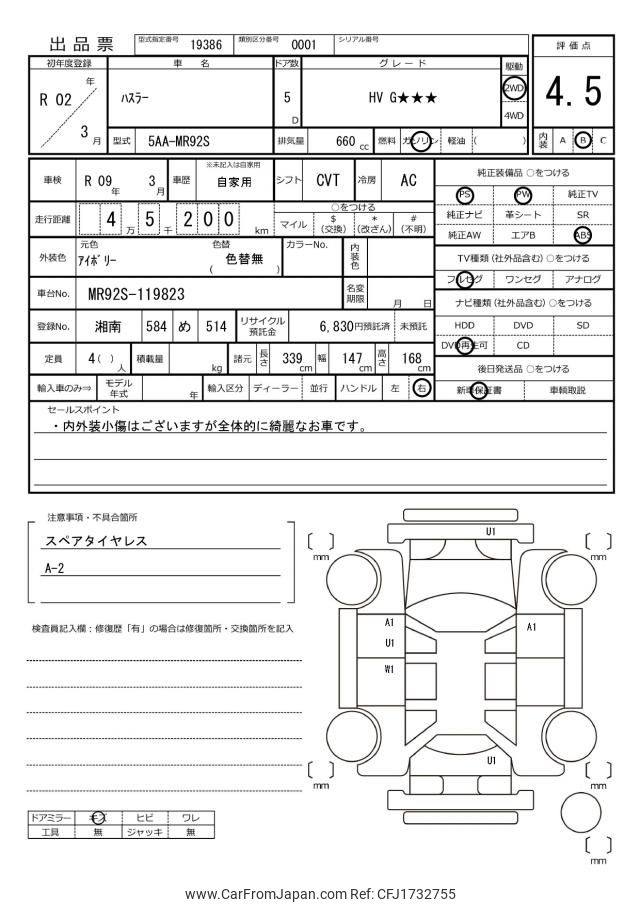 出品票 型式指定番号 19386 類別区分番号 0001 シリアル番号
評価点
4.5
内装 A B C
初年度登録 車名 ドア数 グレード 駆動
R 02 年 3 月 ハスラー 5 D HV G★★★ 2WD
4WD
型式 5AA-MR92S 排気量 660 cc 燃料 ガソリン 軽油 ( )
※未記入は自家用
車検 R 09 年 3 月 車歴 自家用 シフト CVT 冷房 AC
走行距離 4 万 5 千 2 0 0 km
○をつける
マイル $ (交換) * (改ざん) # (不明)
外装色 元色 アイボリー 色替 ( 色替無 ) カラーNo. 内装色
車台No. MR92S-119823 名変期限 月 日
登録No. 湘南 584 め 514 リサイクル預託金 6,830円預託済 未預託
定員 4( ) 人 積載量 kg 諸元 長さ 339 cm 幅 147 cm 高さ 168 cm
輸入車のみ⇒ モデル年式 年 輸入区分 ディーラー 並行 ハンドル 左 右
純正装備品 ○をつける
PS PW 純正TV
純正ナビ 革シート SR
純正AW エアB ABS
TV種類 (社外品含む) ○をつける
フルセグ ワンセグ アナログ
ナビ種類 (社外品含む) ○をつける
HDD DVD SD
DVD再生可 CD
後日発送品 ○をつける
新車保証書 車輌取説
セールスポイント
・内外装小傷はございますが全体的に綺麗なお車です。
注意事項・不具合箇所
スペアタイヤレス
A-2
検査員記入欄：修復歴「有」の場合は修復箇所・交換箇所を記入
ドアミラー キズ ヒビ ワレ
工具 無 ジャッキ 無
U1
mm
mm
A1
A1
U1
W1
U1
mm
mm
mm
www.CarFromJapan.com Ref: CFJ1732755